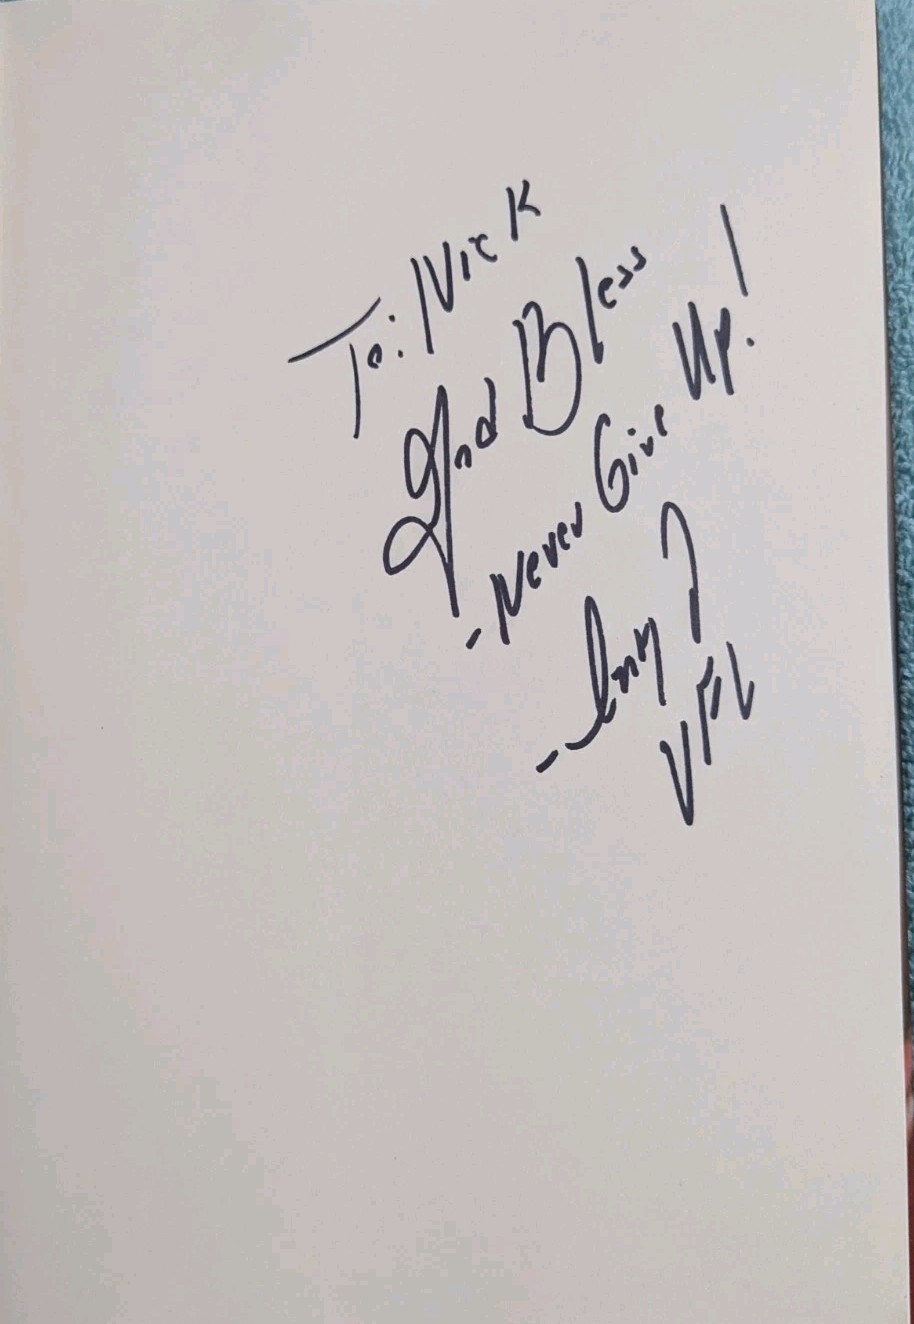 To: Nick
God Bless
- Never Give Up!
VFL